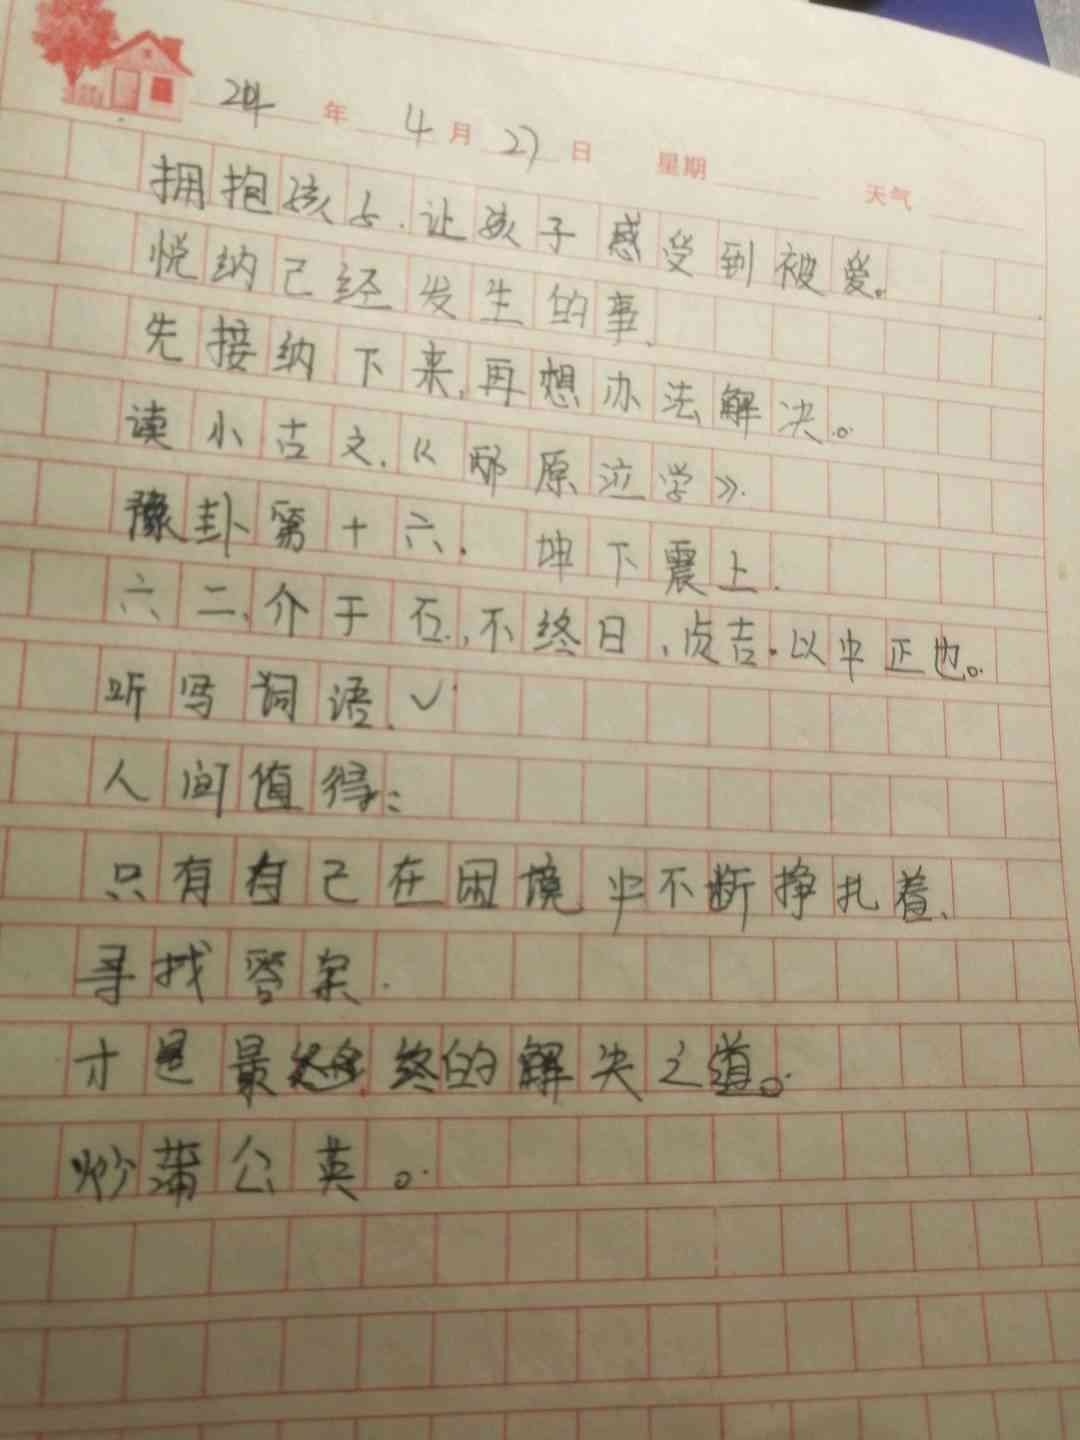 年 4 月 27 日 星期 天气
拥抱孩子.让孩子感受到被爱。
悦纳已经发生的事.
先接纳下来,再想办法解决。
读小古文.《邴原泣学》.
豫卦第十六. 坤下震上.
六二、介于石.,不终日、贞吉.以中正也。
听写词语、✓
人间值得:
只有自己在困境中不断挣扎着、
寻找答案.
才是最终的解决之道。
炒蒲公英。